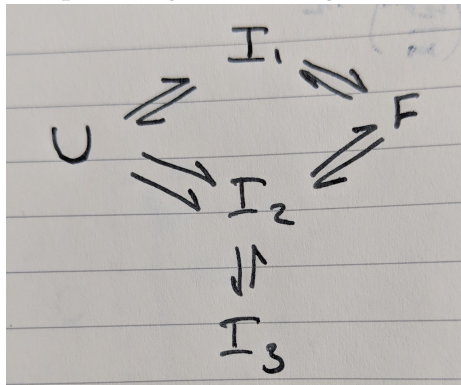 I₁
U F
I₂
I₃